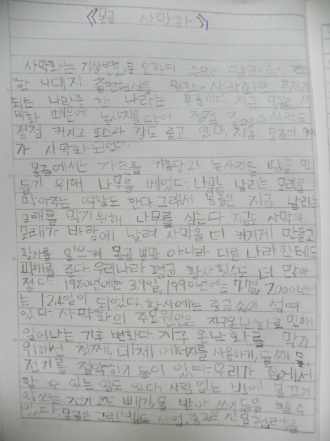 《몽골 사막화》
사막화는 기상변화로 인하여 수목이 말라죽고
한 나대지
되는 나라 중 한 나라는 몽골이다. 지금 몽골은 사
막화 때문에 농사지을 땅이 점점 사막도
점점 커지고 있다. 지금 몽골의
가 사막화되었다.
몽골에서는 가축을 키울 땅과 농사지을 땅을 만
들기 위해 나무를 베었다. 나무는 날리는 모래를
막아주는 역할도 한다. 그래서 몽골은 지금 날리는
모래를 막기 위해 나무를 심는다. 지금도 사막의
모래가 바람에 날려 사막을 더 커지게 만들고
황사를 일으켜 몽골 뿐만 아니라 다른 나라한테도
피해를 준다. 우리나라 평균 황사횟수도 더 많아
졌다. 1980년에는 3.9일, 1990년에는 7.7일, 2000년에
는 12.4일이 되었다. 황사에는 중금속이 섞여
있다. 사막화의 주요원인은 지구온난화로 인해
일어나는 기후 변화다. 지구온난화를 막기
위해서 첫째, 대체 에너지를 사용하기, 둘째
전기를 절약하기 등이 있다. 우리가 집에서
할 수 있는 일도 있다. 사람 없는 방에 불 끄기
안쓰는 전기코드 빼기, 물 받아 쓰기 등을 할 수
있다. 몽골은 그린벨트 사업,